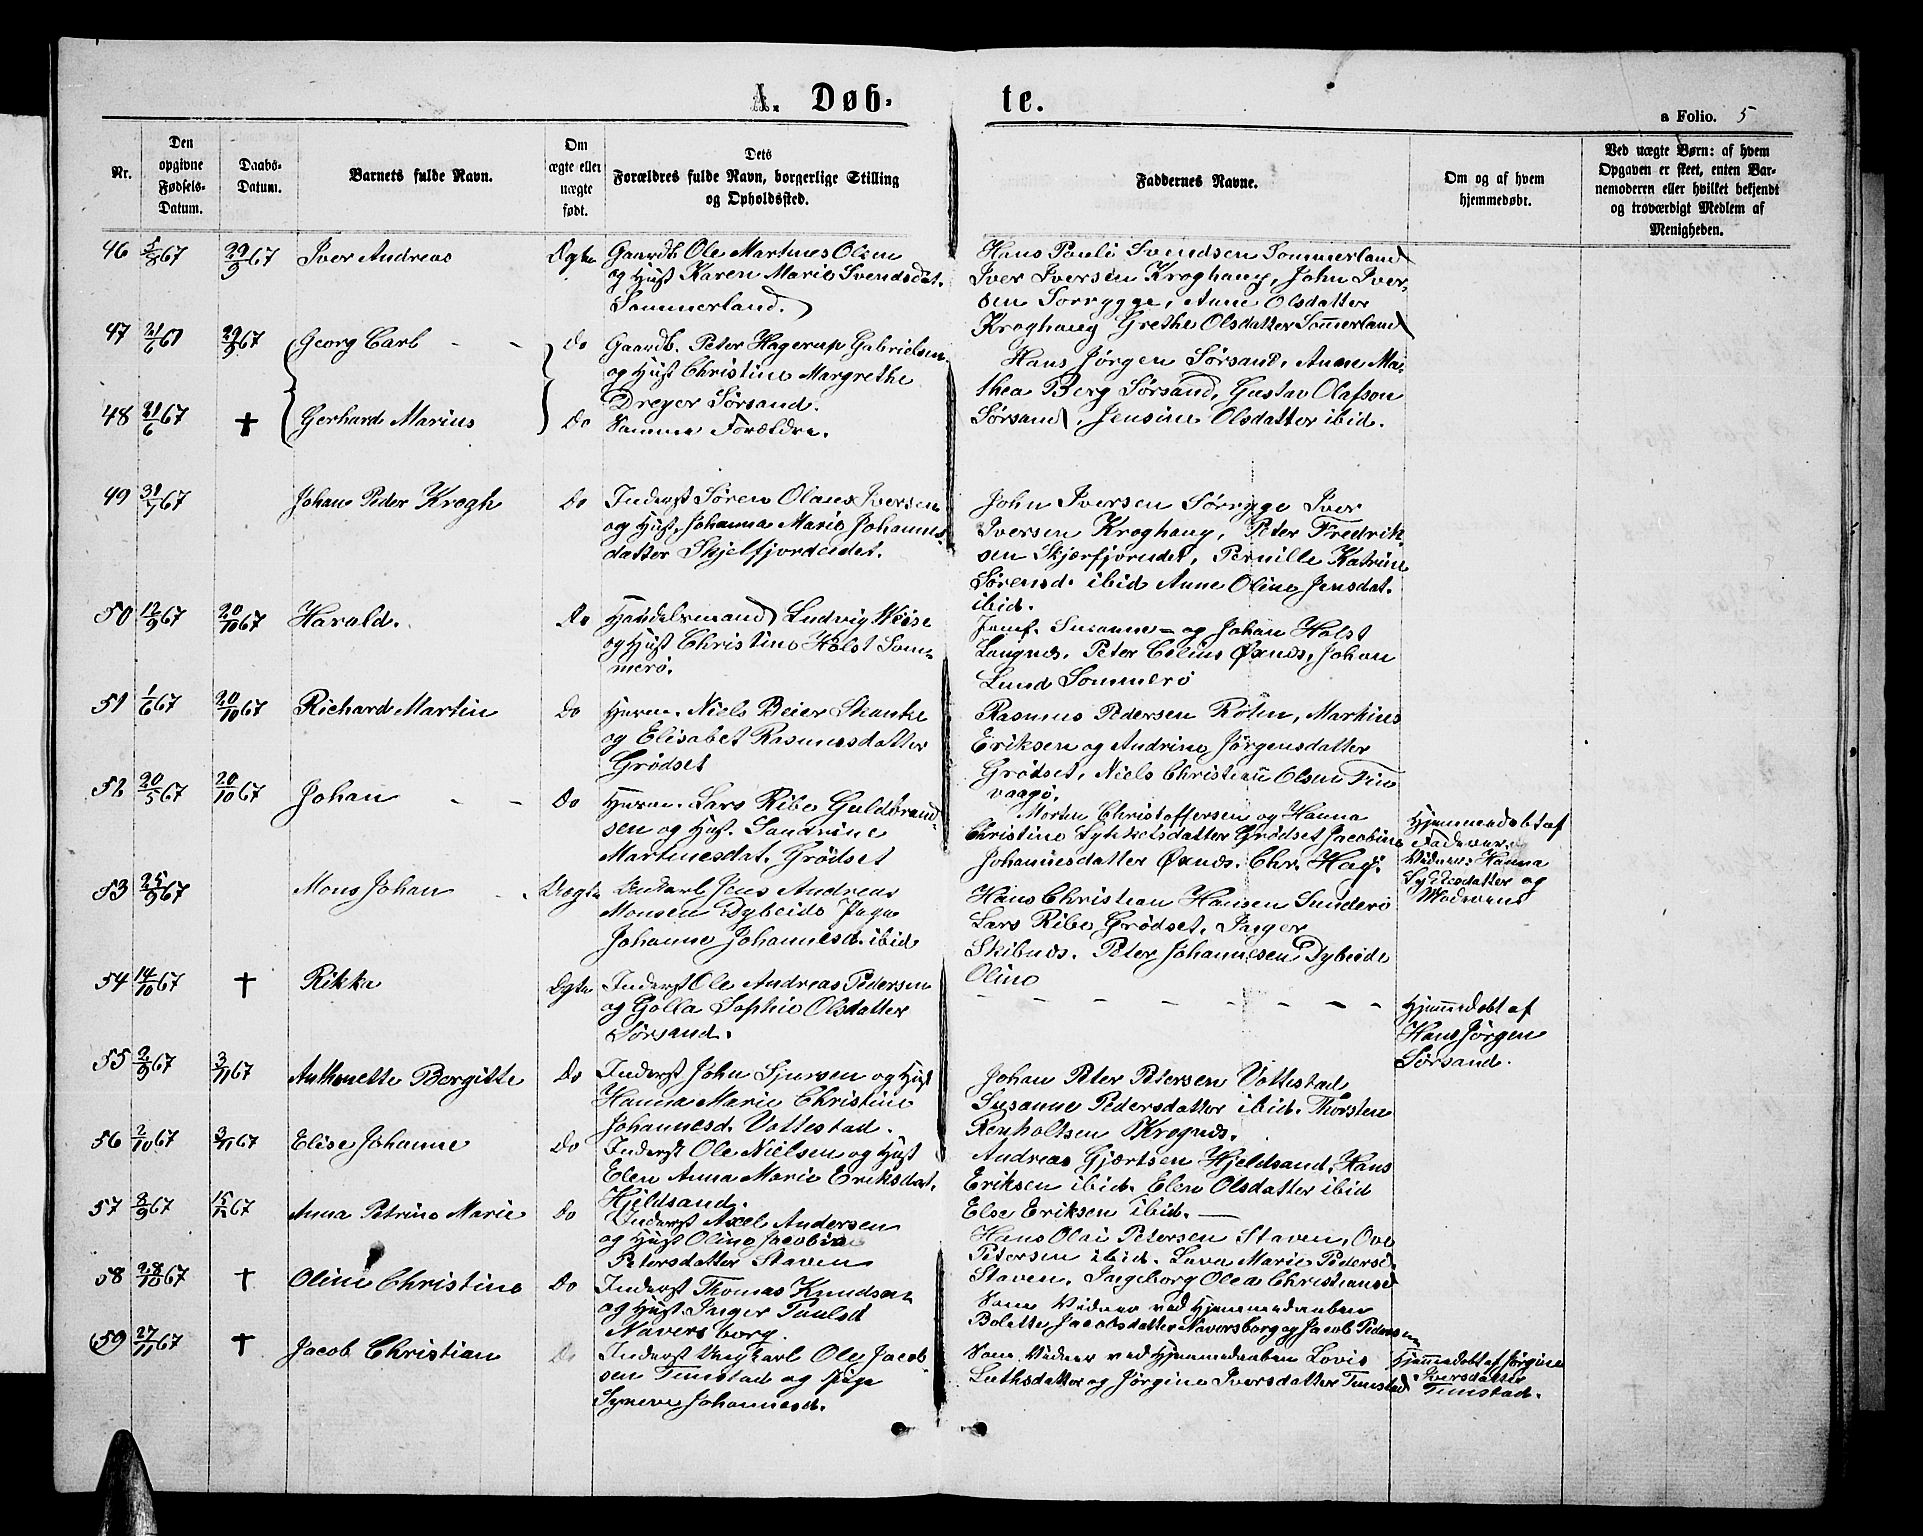 A. Døb- te.
a Folio. 5
Nr.
Den opgivne Fødsels-Datum.
Daabs-Datum.
Barnets fulde Navn.
Om ægte eller uægte født.
Dets Forældres fulde Navn, borgerlige Stilling og Opholdssted.
Faddernes Navne.
Om og af hvem hjemmedøbt.
Ved uægte Børn: af hvem Opgaven er skeet, enten Barnemoderen eller hvilket bekjendt og troværdigt Medlem af Menigheden.
46 5/8 67 29/9 67 Iver Andreas Ægte Gaardb. Ole Martines Olsen
og Hust Karen Marie Svendsdat.
Sommerland.
Hans Pauli Svendsen Sommerland
Iver Iversen Kroghaug, John Iver-
sen Sørrygge, Anne Olsdatter
Kroghaug Grethe Olsdatter Sommerland
47 21/6 67 29/9 67 Georg Carl Do Gaardb. Peter Hagerup Gabrielsen
og Hust Christine Margrethe
Dreyer Sørsand.
Hans Jörgen Sörsand, Anne Ma-
thea Berg Sørsand, Gustav Olafson
Sørsand, Jensine Olsdatter ibid.
48 21/6 67 † Gerhard Marius Do Samme Forældre.
49 31/7 67 Johan Peder Krogh Do Inderst Søren Olaus Iversen
og Hust, Johanna Marie Johannes-
datter Skjelfjordeidet.
John Iversen Sørrygge Iver
Iversen Kroghaug, Peter Fredrik-
sen Skjærfjorudet, Pernille Katrine
Sørensd. ibid Anne Oline Jensdat.
ibid.
50 12/9 67 20/10 67 Harald. Do Handelsmand Ludvig Weise
og Hust Christine Holst Som-
merö.
Jomf. Susanne og Johan Holst
Langnes, Peter Celius Øxnes, Johan
Lund Sommerø
51 1/6 67 20/10 67 Richard Martin Do Husm. Niels Beier Skanke
og Elisabet Rasmusdatter
Grödset
Rasmus Pedersen Röten, Martines
Eriksen og Andrine Jörgensdatter
Grödset, Niels Christian Olsen Tin-
vaagö.
52 20/5 67 20/10 67 Johan Do Husm. Lars Ribe Guldbrand-
sen og Hust. Sandrine
Martinesdat. Grödset
Morten Christoffersen og Hanna
Christine Lykkelsdatter Grødset Jacobine
Johannesdatter Øxnes. Chr. Hag.
Hjemmedøbt af
Faderen.
Vidner: Hanna
og
Moderens
53 25/9 67 Mons Johan Uægte Ungkarl Jens Andreas
Monsen Dybeide Pige
Johanne Johannesd. ibid
Hans Christian Hansen Sunderö
Lars Ribe Grødset, Inger
Skibnes. Peter Johannesen Dybeide
Oline
54 14/10 67 † Rikka Ægte Inderst Ole Andreas Pedersen
og Golla Sophie Olsdatter
Sörsand.
Hjemmedøbt af
Hans Jörgen
Sørsand.
55 2/9 67 3/11 67 Anthonette Bergitte Do Inderst John Sjursen og Hust
Hanna Marie Christine
Johannesd. Vottestad.
Johan Peter Petersen Vottestad
Susanne Pedersdatter ibid. Thorsten
Renholtsen Krognes.
56 2/10 67 3/11 67 Elise Johanne Do Inderst Ole Nielsen og Hust
Elen Anna Marie Eriksdat.
Hjeldsand.
Andreas Gjærtsen Hjeldsand, Hans
Eriksen ibid. Elen Olsdatter ibid
Else Eriksen ibid.
57 8/9 67 Anna Petrine Marie Do Inderst Axel Andersen
og Hust Oline Jacobine
Petersdatter Staven
Hans Olai Petersen Staven, Ove
Petersen ibid. Lava Marie Peders.
Staven, Ingeborg Olea Christiansd
58 28/10 67 † Oline Christine Do Inderst Thomas Knudsen
og Hust. Inger Paulsd
Naversborg.
Som Vidner ved Hjemmedaaben
Bolette Jacobsdatter Naversborg og Jacob Pedersen
59 27/11 67 † Jacob Christian Do Inderst Ungkarl Ole Jacob-
sen Tunstad og Pige
Syneve Johannesd.
Som Vidner ved Hjemmedaaben Lovis
Luthsdatter og Jørgine Iversdatter Tunstad
Hjemmedøbt af Jørgine
Iversdatter
Tunstad.